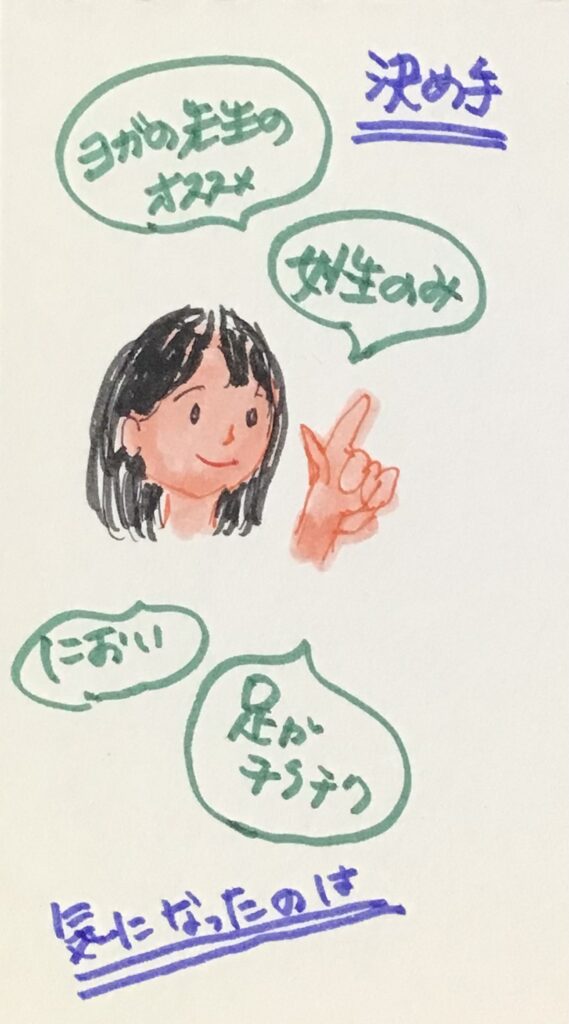 決め手
ヨガの先生の
オススメ
女性のみ
におい
足が
チクチク
気になったのは